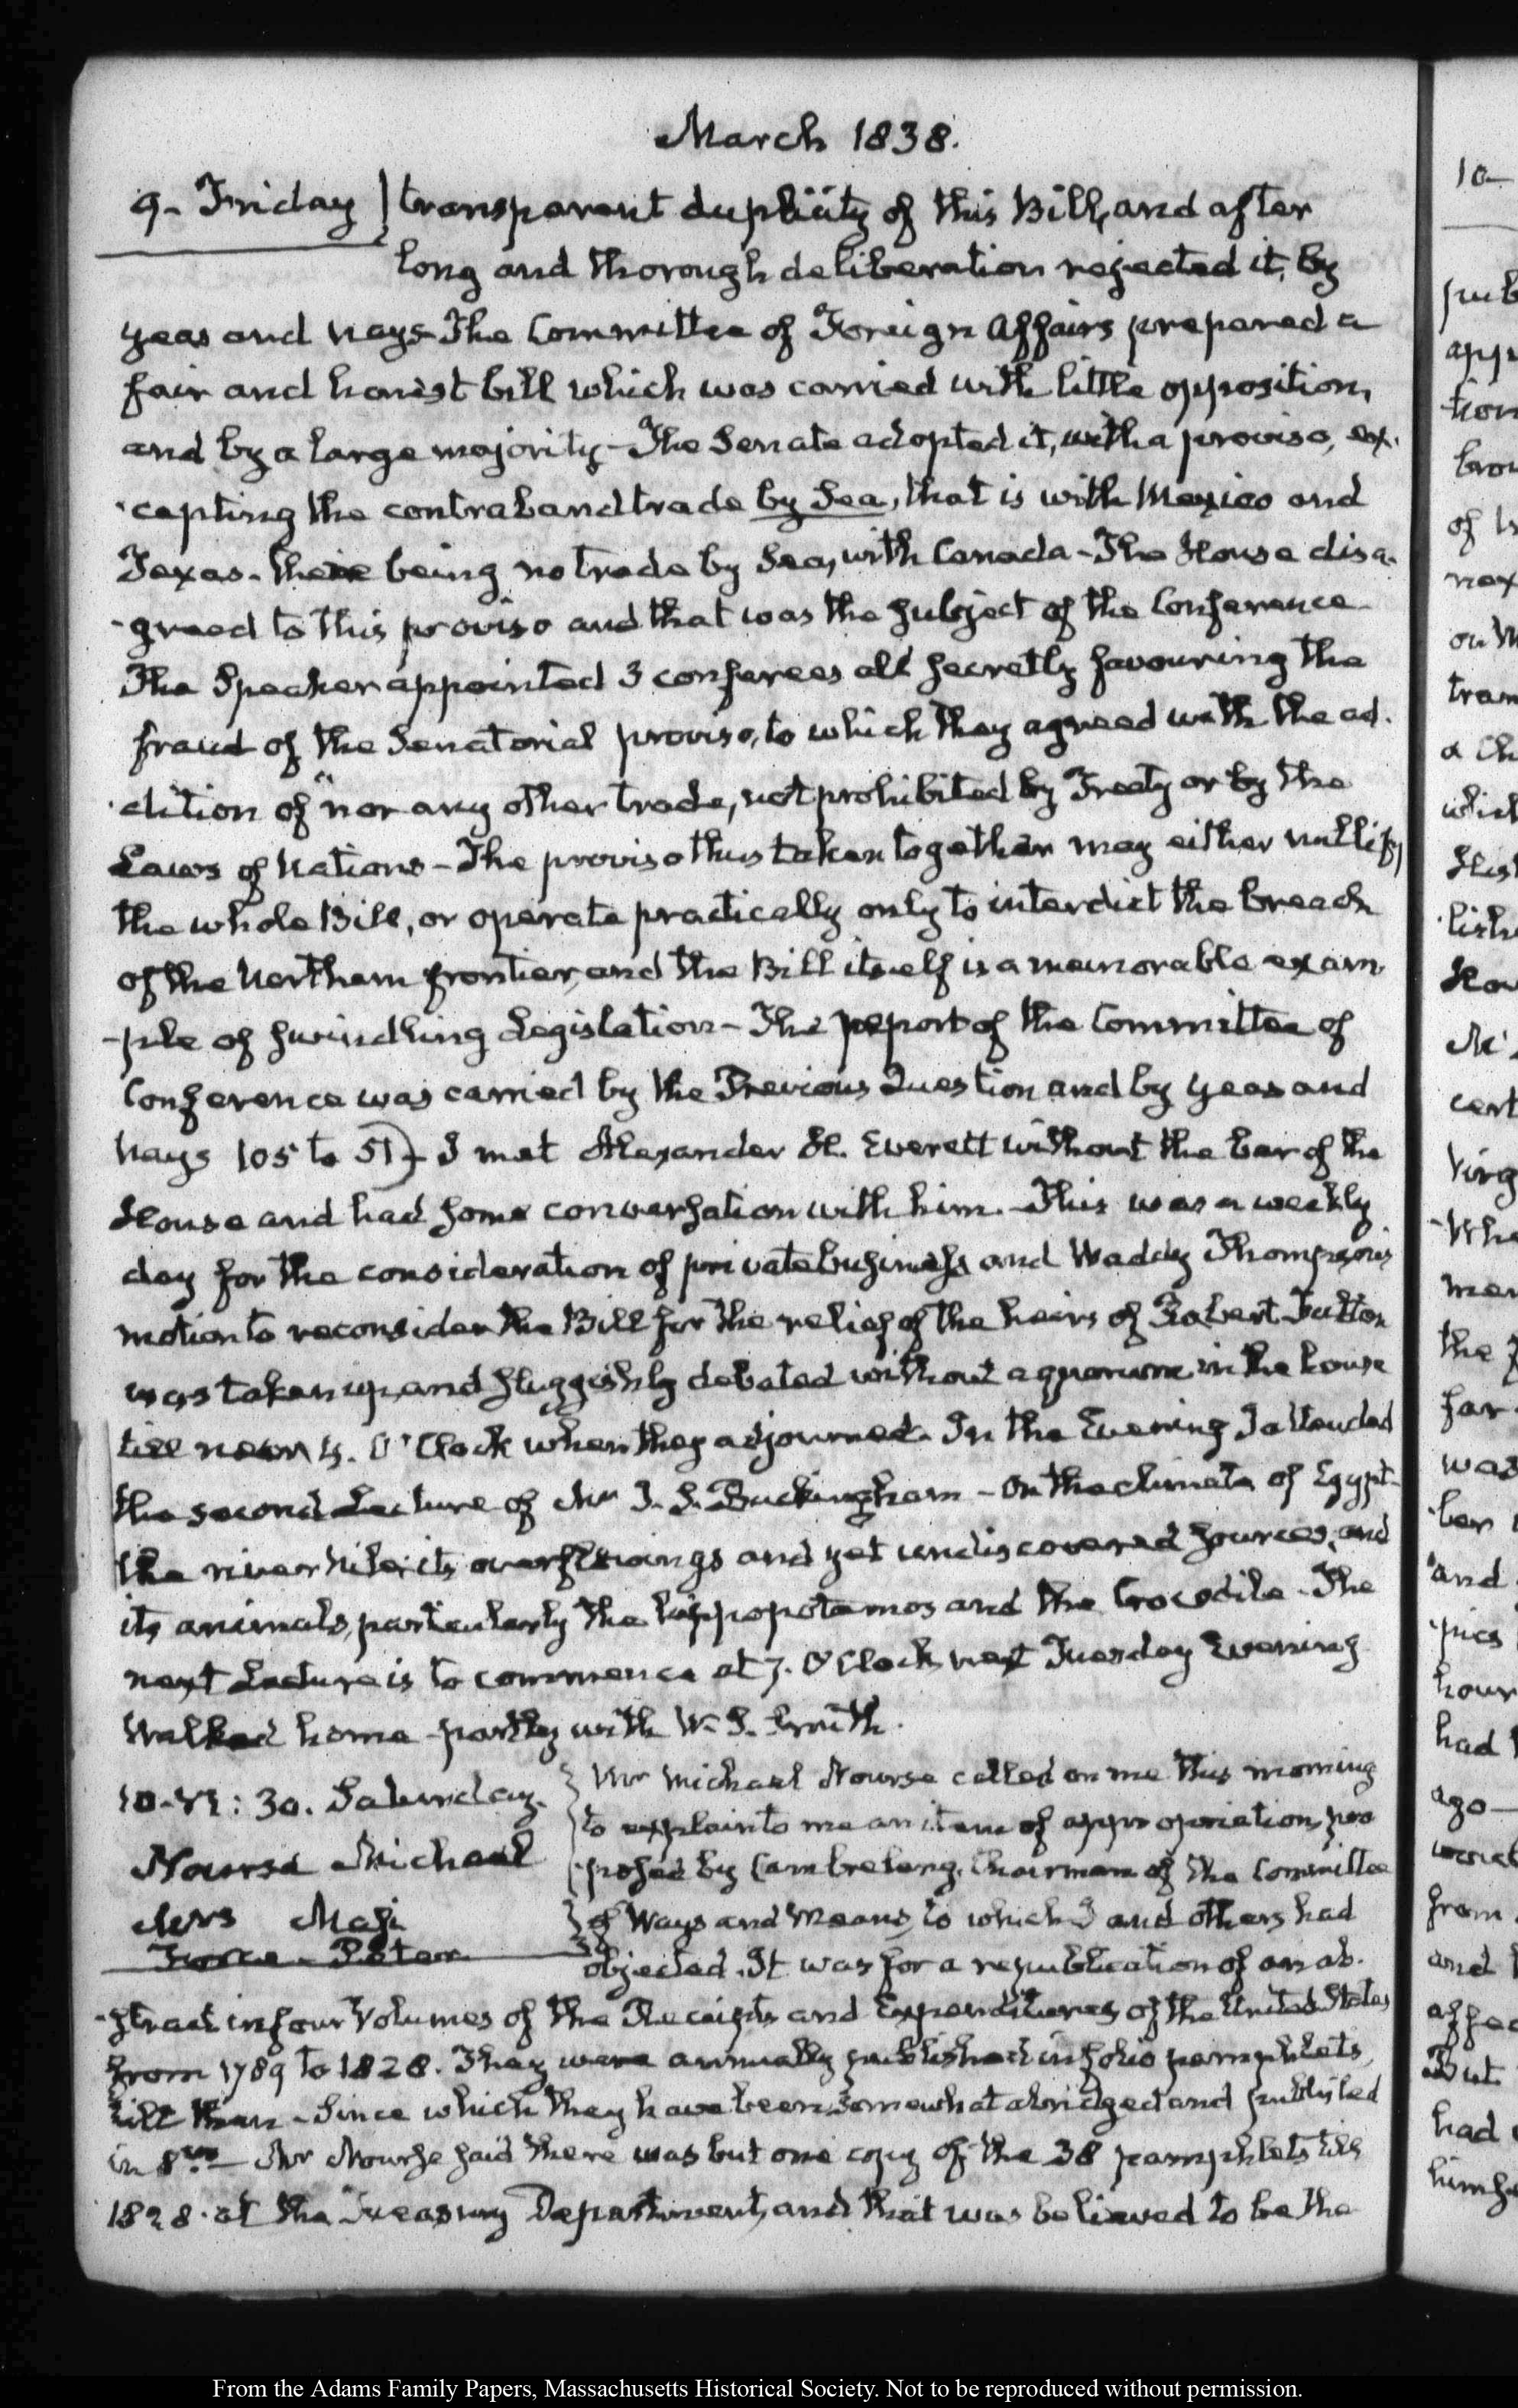 March 1838.
9. Friday } transparent duplicity of this Bill, and after
long and thorough deliberation rejected it, by
yeas and nays. The Committee of Foreign Affairs prepared a
fair and honest bill which was carried with little opposition,
and by a large majority - The Senate adopted it, with a proviso, ex-
-cepting the contraband trade by Sea, that is with Mexico and
Texas. there being no trade by Sea, with Canada - The House disa-
-greed to this proviso and that was the subject of the Conference
The Speaker appointed 3 conferees all secretly favouring the
fraud of the Senatorial proviso, to which they agreed with the ad-
-dition of "nor any other trade, not prohibited by Treaty or by the
Laws of Nations - The proviso thus taken together may either nullify
the whole Bill, or operate practically only to interdict the breach
of the Northern frontier, and the Bill itself is a memorable exam-
-ple of swindling Legislation - The report of the Committee of
Conference was carried by the Previous Question and by yeas and
nays 105 to 51) - I met Alexander H. Everett without the bar of the
House and had some conversation with him. - This was a weekly
day for the consideration of private business and Waddy Thompson's
motion to reconsider the Bill for the relief of the heirs of Robert Fulton
was taken up, and sluggishly debated without a quorum in the house
till near 4. O'Clock when they adjourned. In the Evening I attended
the second Lecture of Mr J. S. Buckingham - On the climate of Egypt -
the river Nile; its overflowings and yet undiscovered sources, and
its animals, particularly the hippopotamos and the Crocodile - The
next Lecture is to commence at 7. O'Clock next Tuesday Evening
Walked home partly with W. S. Smith.
10. VI: 30. Saturday. } Mr Michael Nourse called on me this morning
to explain to me an item of appropriation, pro
Nourse Michael -posed by Cambreleng, Chairman of the Committee
Mrs Masi } of Ways and Means, to which I and others had
Force - Peter objected. It was for a republication of an ab-
-stract in four Volumes of the Receipts and Expenditures of the United States
from 1789 to 1828. They were annually published in folio pamphlets,
till then - Since which they have been somewhat abridged and published
in 8vo - Mr Nourse said there was but one copy of the 38 pamphlets till
1828. at the Treasury Department, and that was believed to be the
10-
had
and
the
was
from
From the Adams Family Papers, Massachusetts Historical Society. Not to be reproduced without permission.